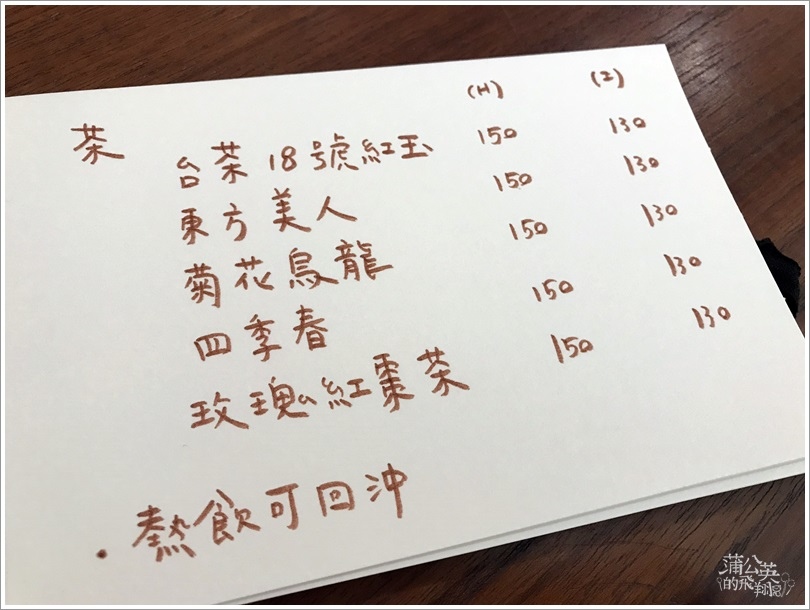 (H) (I)
茶
台茶18號紅玉 150 130
東方美人 150 130
菊花烏龍 150 130
四季春 150 130
玫瑰紅棗茶 150 130
·熱飲可回沖
蒲公英
的飛翔記